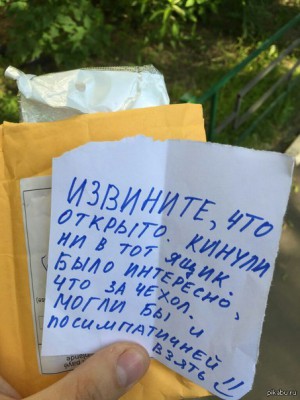 ИЗВИНИТЕ, ЧТО
ОТКРЫТО. КИНУЛИ
НИ В ТОТ ЯЩИК.
БЫЛО ИНТЕРЕСНО,
ЧТО ЗА ЧЕХОЛ.
МОГЛИ БЫ И
ПОСИМПАТИЧНЕЙ
ВЗЯТЬ
pikabu.ru